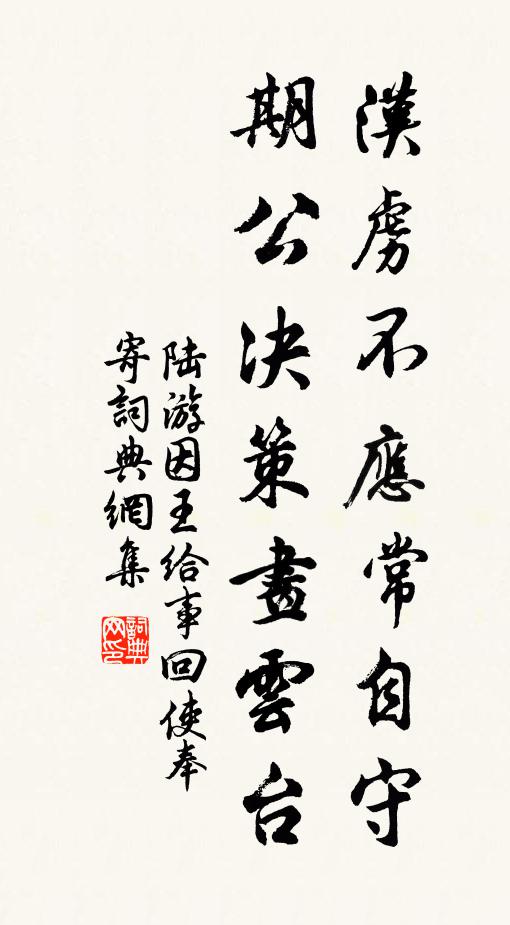 漢虜不應常自守
期公決策畫雲台
陆游因王给事回使奉
寄詞典網集
詞典网印